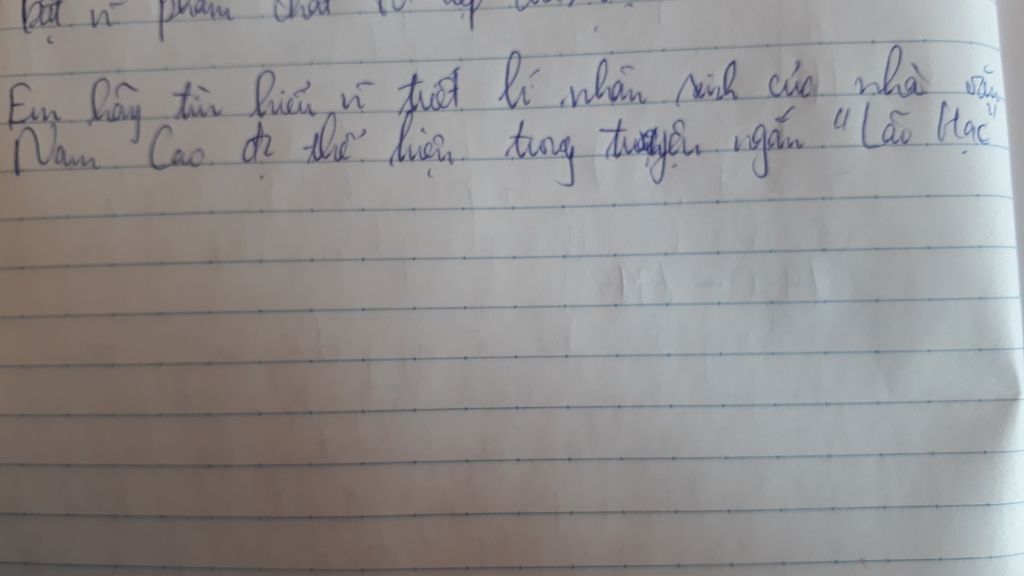 phẩm chất
Em hãy tìm hiểu về triết lí nhân sinh của nhà văn
Nam Cao đc thể hiện trong truyện ngắn "Lão Hạc"